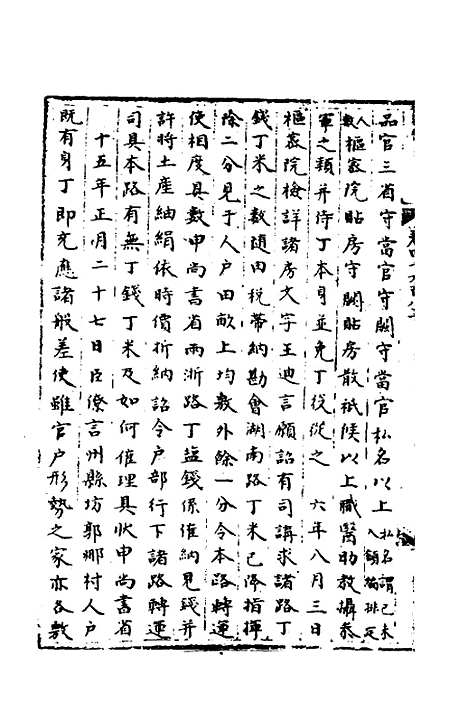 品官三省守當官守闕守當官私名以上私名謂已未入額編排定
人數樞密院貼房守闕貼房散祇候以上職醫助教攝叅
軍之類并侍丁本身並免丁役從之　六年八月三日
樞密院檢詳諸房文字王迪言願詔有司講求諸路丁
錢丁米之數隨田稅帶納勘會湖南路丁米已降指揮
除二分見于人戶田畝上均敷外餘一分令本路轉運
使相度具數申尚書省兩浙路丁塩錢係催納見錢并
許將土産紬絹依時價折納詔令戶部行下諸路轉運
司具本路有無丁錢丁米及如何催理具狀申尚書省
十五年正月二十七日臣僚言州縣坊郭鄉村人戶
既有身丁即充應諸般差使雖官戶形勢之家亦各敷